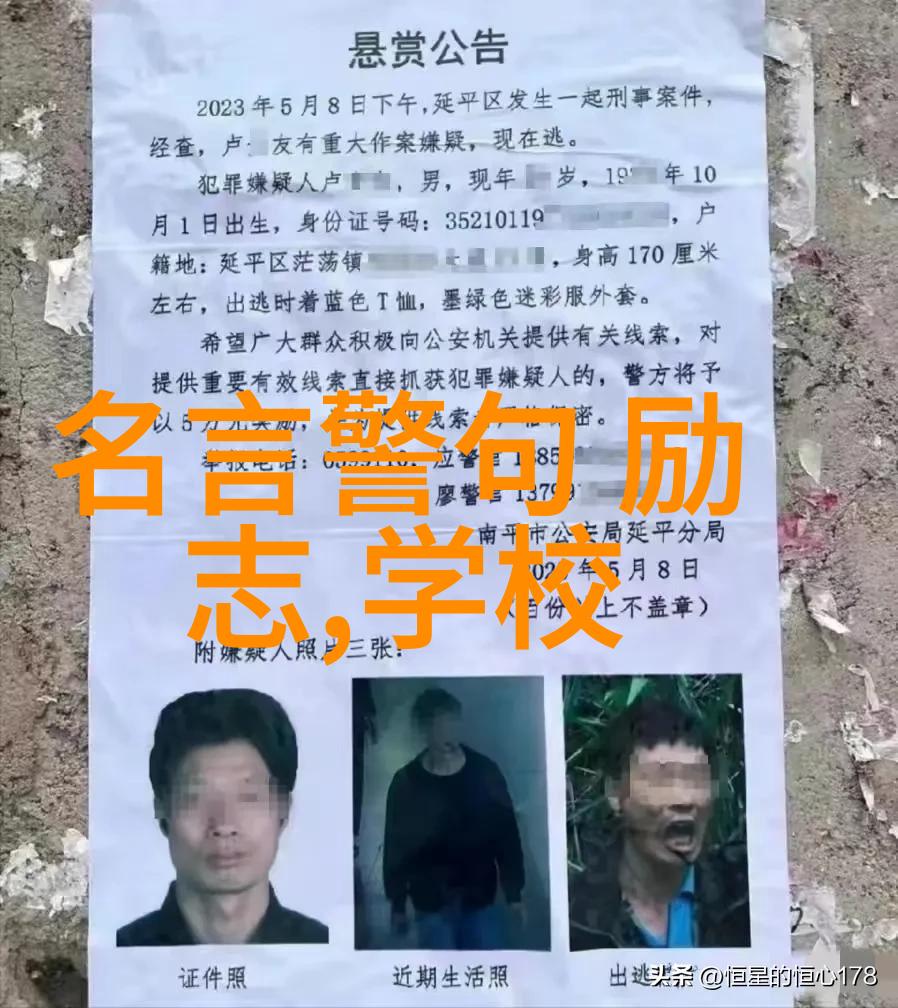 悬赏公告
2023年5月8日下午,延平区发生一起刑事案件,
经查,卢 友有重大作案嫌疑,现在逃。
犯罪嫌疑人卢 ,男,现年 岁,19 年10
月1日出生,身份证号码:35210119 ,户
籍地:延平区茫荡镇 ,身高170厘米
左右,出逃时着蓝色T恤,墨绿色迷彩服外套。
希望广大群众积极向公安机关提供有关线索,对
提供重要有效线索直接抓获犯罪嫌疑人的,警方将予
以5万元奖励,
名言警句 励
志,学校
举报电话:
廖警官 13799
南平市公安局延平分局
5月8日
附嫌疑人照片三张:
证件照
近期生活照
出逃
头条 @恒星的恒心178